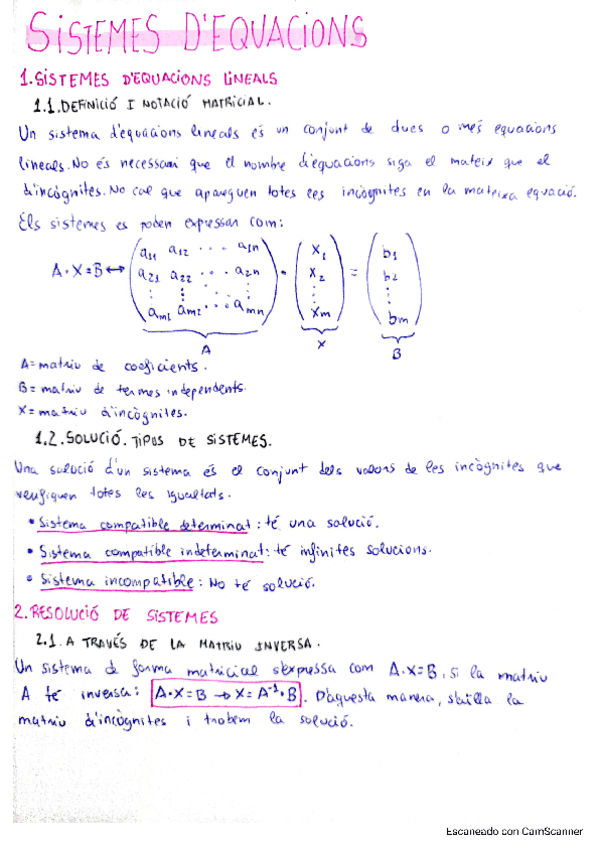 SISTEMES D'EQUACIONS
1. SISTEMES D'EQUACIONS LINEALS
1.1. DEFINICIÓ I NOTACIÓ MATRICIAL.
Un sistema d'equacions lineals és un conjunt de dues o més equacions
lineals. No és necessari que el nombre d'equacions siga el mateix que el
d'incògnites. No cal que apareguen totes les incògnites en la mateixa equació.
Els sistemes es poden expressar com:
A·X=B ↔ (a11 a12 ... a1n; a21 a22 ... a2n; ⋮ ⋮ ⋮; am1 am2 ... amn) · (x1; x2; ⋮; xm) = (b1; b2; ⋮; bm)
A X B
A = matriu de coeficients.
B = matriu de termes independents.
X = matriu d'incògnites.
1.2. SOLUCIÓ. TIPOS DE SISTEMES.
Una solució d'un sistema és el conjunt dels valors de les incògnites que
verifiquen totes les igualtats.
• Sistema compatible determinat: té una solució.
• Sistema compatible indeterminat: té infinites solucions.
• Sistema incompatible: No té solució.
2. RESOLUCIÓ DE SISTEMES
2.1. A TRAVÉS DE LA MATRIU INVERSA.
Un sistema de forma matricial s'expressa com A·X=B, si la matriu
A té inversa: A·X=B → X=A⁻¹·B. D'aquesta manera, s'aïlla la
matriu d'incògnites i trobem la solució.
Escaneado con CamScanner